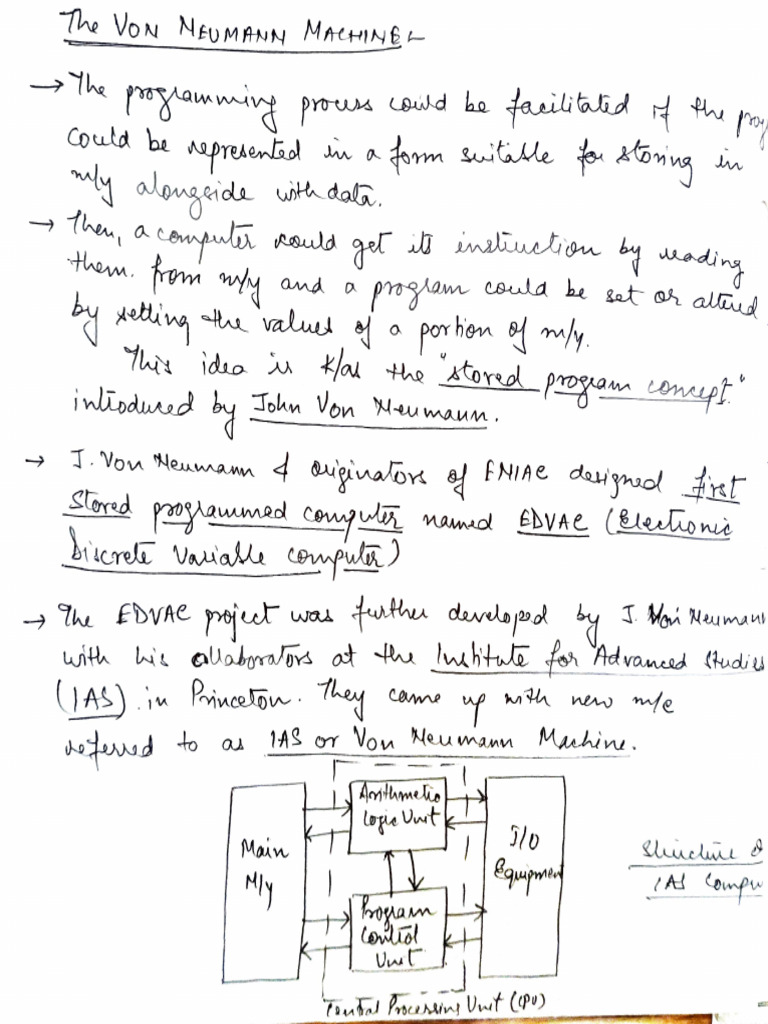 The VON NEUMANN MACHINE
→ The programming process could be facilitated if the prog
could be represented in a form suitable for storing in
m/y alongside with data.
→ Then, a computer could get its instruction by reading
them. from m/y and a program could be set or altered
by setting the values of a portion of m/y.
This idea is k/as the "stored program concept."
introduced by John Von Neumann.
→ J. Von Neumann & originators of ENIAC designed first
Stored programmed computer named EDVAC (Electronic
Discrete Variable computer)
→ The EDVAC project was further developed by J. Von Neumann
with his collaborators at the Institute for Advanced Studies
(IAS) in Princeton. They came up with new m/c
referred to as IAS or Von Neumann Machine.
Arithmetic
Logic Unit
Main
M/y
I/O
Equipment
Structure o
IAS Compu
Program
Control
Unit
Central Processing Unit (CPU)